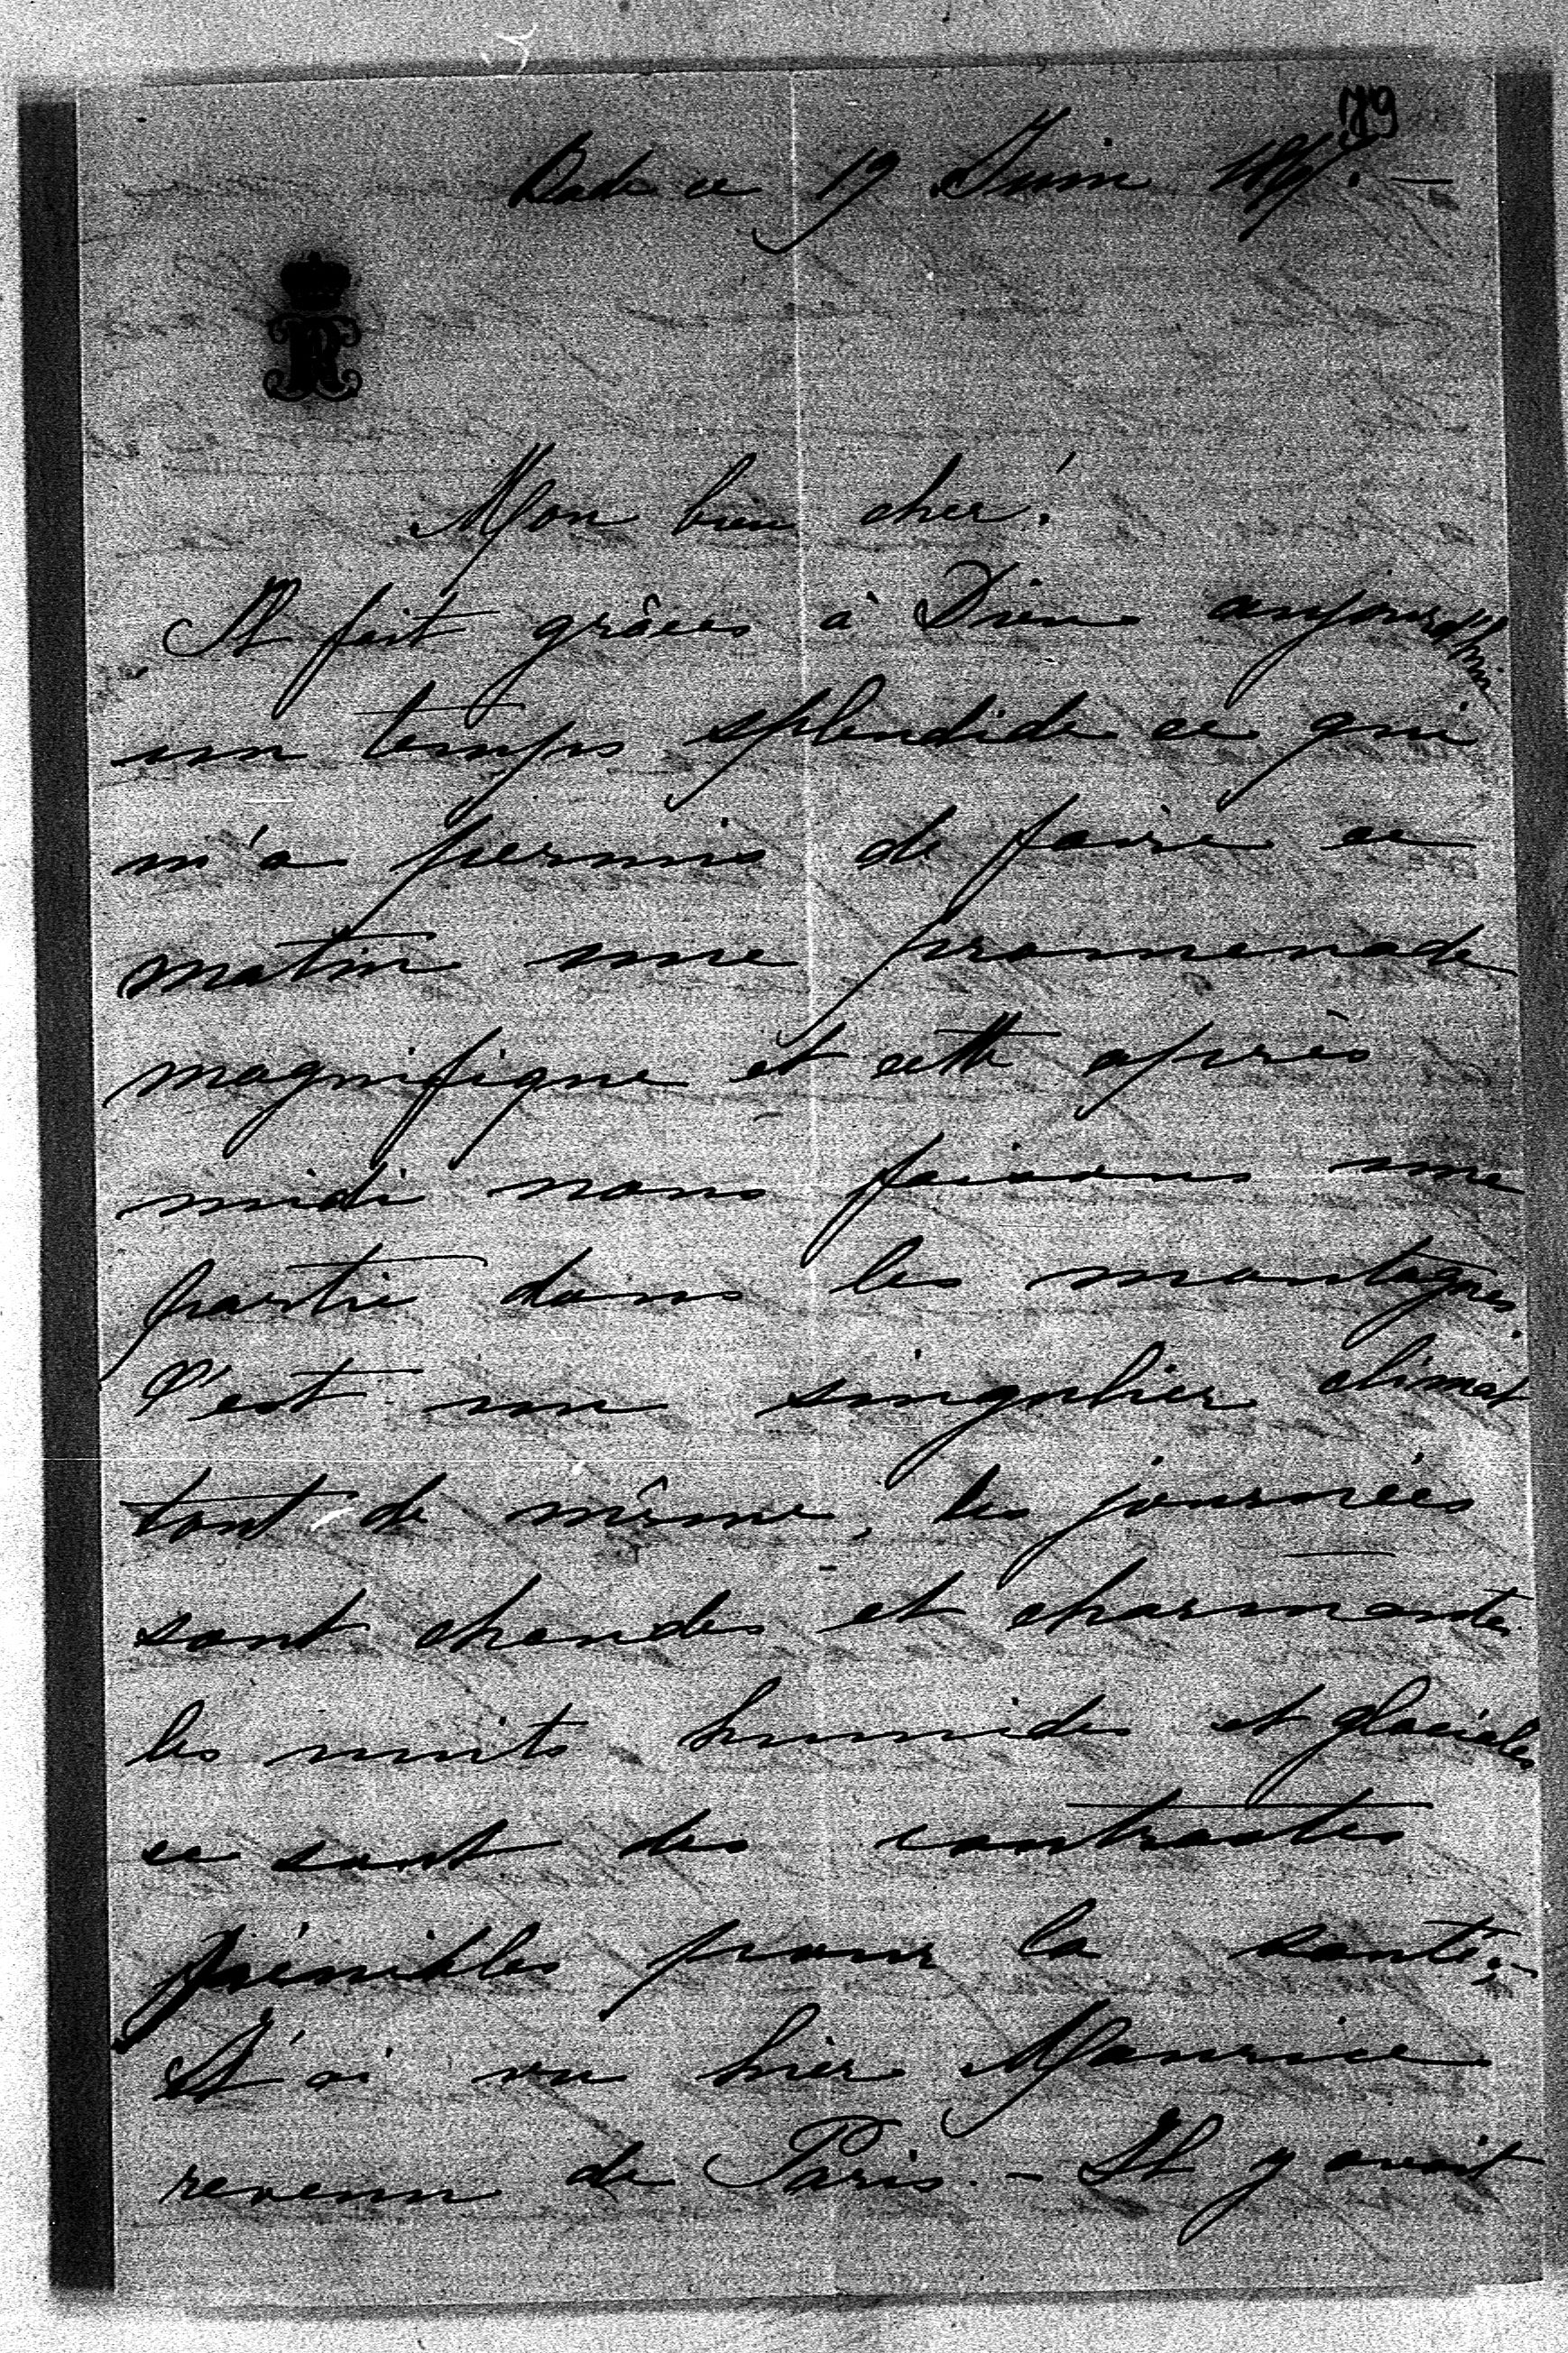 79
Bade ce 19 Juin
Mon bien cher!
Il fait grâces à Dieu aujourd'hui
un temps splendide ce qui
m'a permis de faire ce
matin une promenade
magnifique et cette après
midi nous faisons une
partie dans les montagnes.
C'est un singulier climat
tout de même, les journées
sont chaudes et charmantes
les nuits humides et glaciales
ce sont des contrastes
pénibles pour la santé. -
J'ai vu hier Maurice
revenu de Paris. - Il y avait